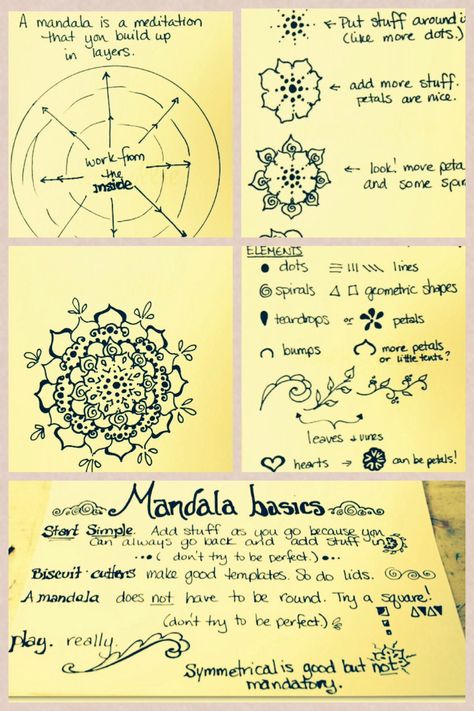 A mandala is a meditation
that you build up
in layers.
work from
the
inside
← Put stuff around i
(like more dots.)
← add more stuff.
petals are nice.
← look! more peta
and some spir
ELEMENTS
dots lines
spirals geometric shapes
teardrops or petals
bumps more petals
or little tents?
leaves + vines
hearts → can be petals!
Mandala basics
Start Simple. Add stuff as you go because you
can always go back and add stuff in
(don't try to be perfect.)
Biscuit cutters make good templates. So do lids.
A mandala does not have to be round. Try a square!
(don't try to be perfect.)
play. really.
Symmetrical is good but not
mandatory.